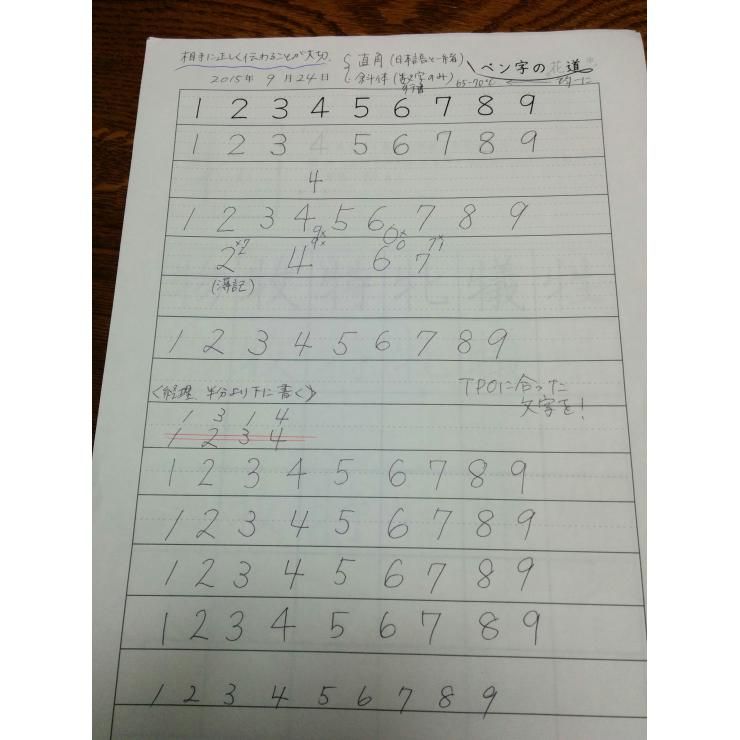 相手に正しく伝わることが大切.
直角(日本語と一緒)
2015年 9月24日
斜体(数字のみ)
65-70°
ペン字の花道
1 2 3 4 5 6 7 8 9
1 2 3 4 5 6 7 8 9
4
1 2 3 4 5 6 7 8 9
2 4 6 7
(簿記)
1 2 3 4 5 6 7 8 9
〈経理 半分より下に書く〉
TPOに合った
文字を!
1 3 1 4
1 2 3 4
1 2 3 4 5 6 7 8 9
1 2 3 4 5 6 7 8 9
1 2 3 4 5 6 7 8 9
1 2 3 4 5 6 7 8 9
1 2 3 4 5 6 7 8 9